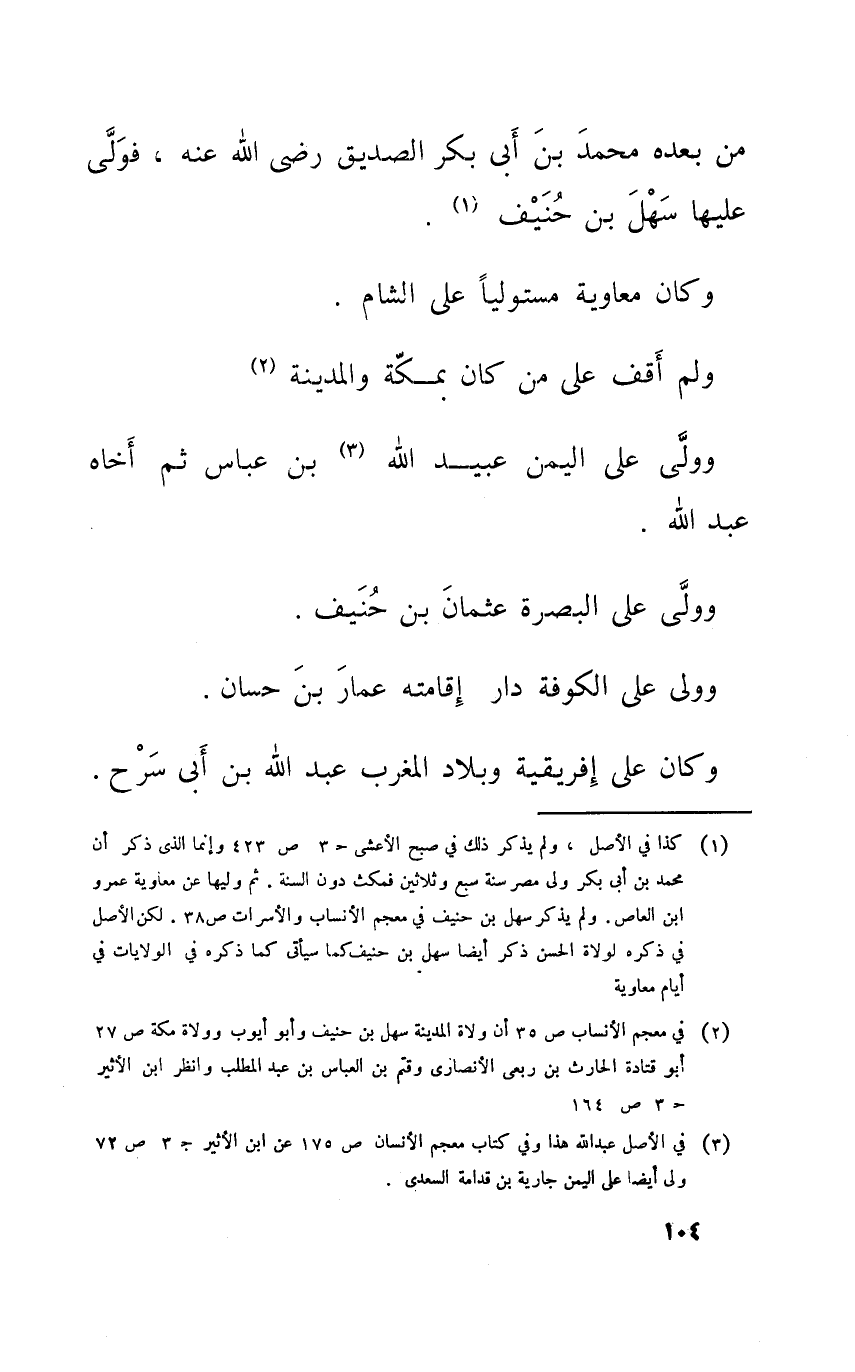 من بعده محمدَ بنَ أَبى بكر الصديق رضى الله عنه ، فوَلَّى
عليها سَهْلَ بن حُنَيْف (١) .
وكان معاوية مستولياً على الشام .
ولم أَقف على من كان بمكّة والمدينة (٢)
وولَّى على اليمن عبيد الله (٣) بن عباس ثم أَخاه
عبد الله .
وولَّى على البصرة عثمانَ بن حُنَيف .
وولى على الكوفة دار إِقامته عمارَ بنَ حسان .
وكان على إِفريقية وبلاد المغرب عبد الله بن أَبى سَرْح .
(١) كذا في الأصل ، ولم يذكر ذلك في صبح الأعشى ج ٣ ص ٤٢٣ وإنما الذى ذكر أن
محمد بن أبى بكر ولى مصر سنة سبع وثلاثين فمكث دون السنة . ثم وليها عن معاوية عمرو
ابن العاص. ولم يذكر سهل بن حنيف في معجم الأنساب والأسرات ص٣٨ . لكن الأصل
في ذكره لولاة الحسن ذكر أيضا سهل بن حنيف كما سيأتى كما ذكره في الولايات في
أيام معاوية
(٢) في معجم الأنساب ص ٣٥ أن ولاة المدينة سهل بن حنيف وأبو أيوب وولاة مكة ص ٢٧
أبو قتادة الحارث بن ربعى الأنصارى وقثم بن العباس بن عبد المطلب وانظر ابن الأثير
ج ٣ ص ١٦٤
(٣) في الأصل عبدالله هذا وفي كتاب معجم الأنسان ص ١٧٥ عن ابن الأثير ج ٣ ص ٧٢
ولى أيضا على اليمن جارية بن قدامة السعدى .
١٠٤